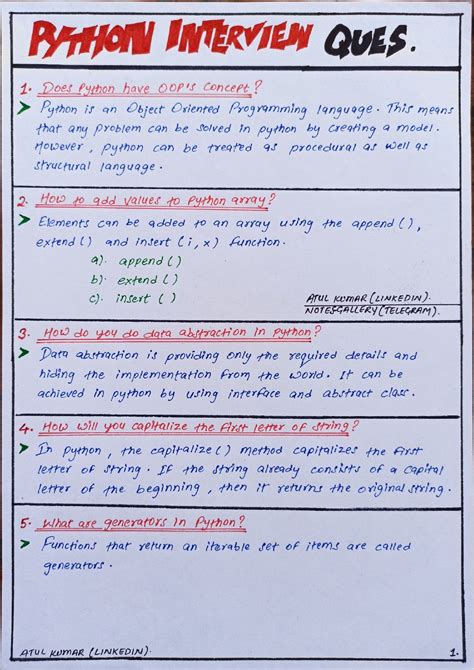 PYTHON INTERVIEW QUES.
1. Does Python have OOP's concept?
➤ Python is an Object Oriented Programming language. This means
that any problem can be solved in python by creating a model.
However, python can be treated as procedural as well as
structural language.
2. How to add values to Python array?
➤ Elements can be added to an array using the append(),
extend() and insert(i,x) function.
a). append()
b). extend()
c). insert()
ATUL KUMAR (LINKEDIN).
NOTESGALLERY (TELEGRAM).
3. How do you do data abstraction in Python?
➤ Data abstraction is providing only the required details and
hiding the implementation from the world. It can be
achieved in python by using interface and abstract class.
4. How will you capitalize the first letter of string?
➤ In python, the capitalize() method capitalizes the first
letter of string. If the string already consists of a capital
letter of the beginning, then it returns the original string.
5. What are generators in Python?
➤ Functions that return an iterable set of items are called
generators.
ATUL KUMAR (LINKEDIN).
1.